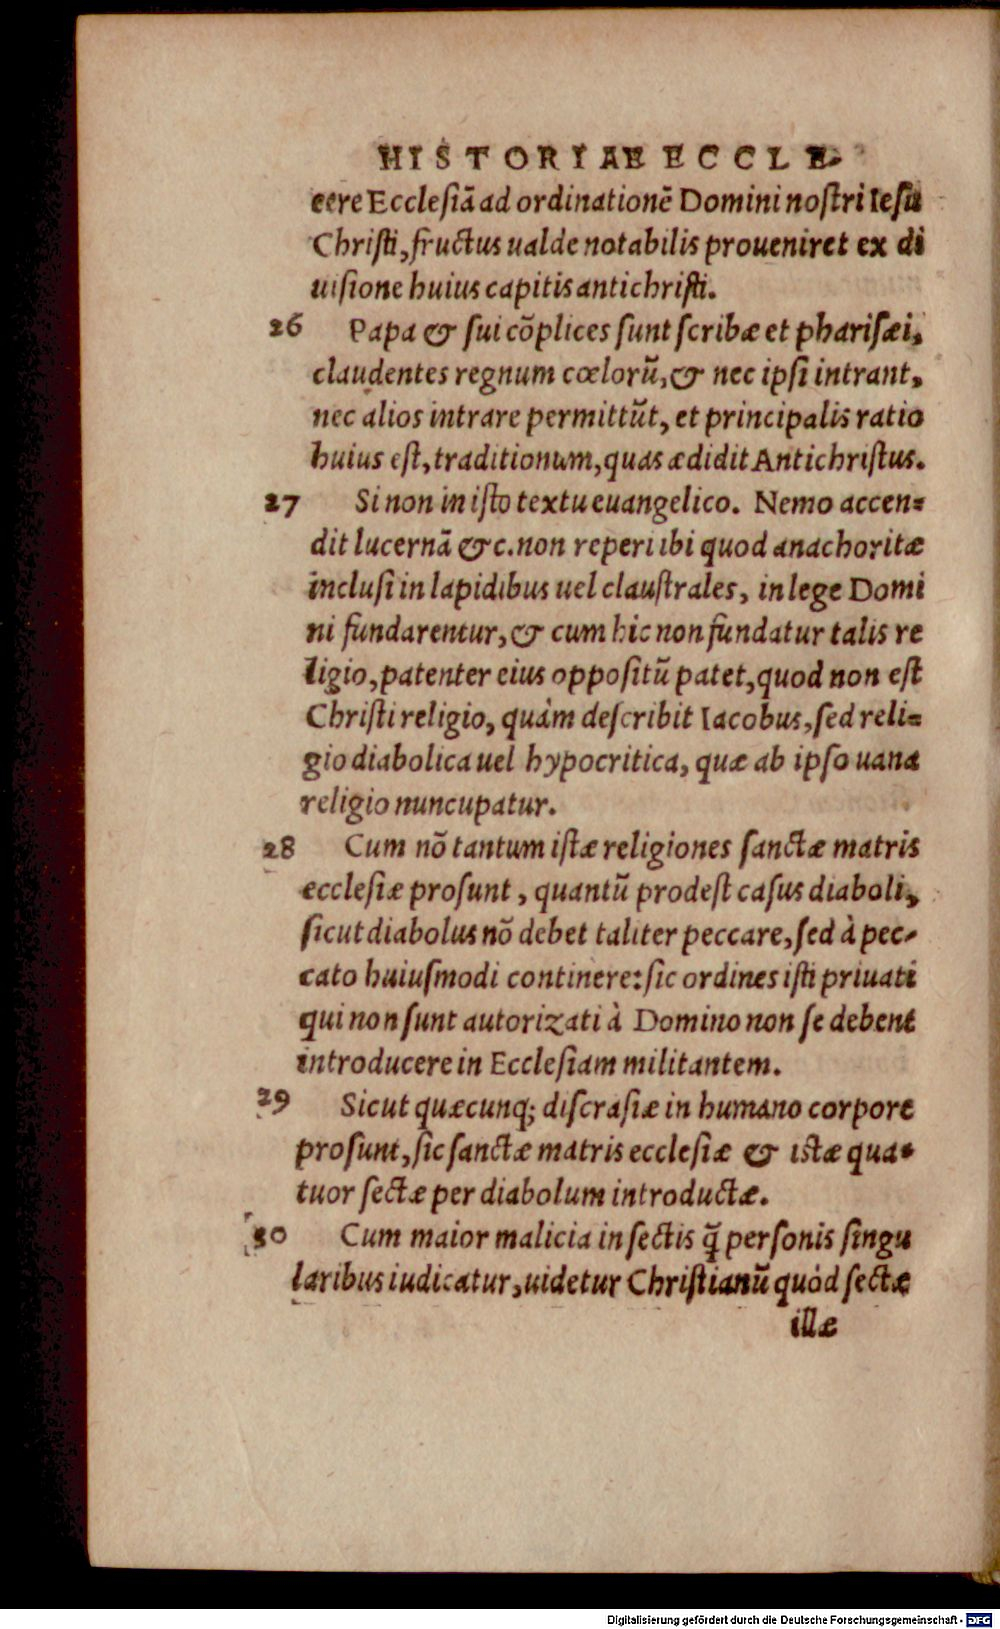 HISTORIAE ECCLE-
cere Ecclesiā ad ordinationē Domini nostri Iesu
Christi, fructus ualde notabilis proueniret ex di
uisione huius capitis antichristi.
26 Papa & sui cōplices sunt scribæ et pharisæi,
claudentes regnum cœlorū, & nec ipsi intrant,
nec alios intrare permittūt, et principalis ratio
huius est, traditionum, quas ædidit Antichristus.
27 Si non in isto textu euangelico. Nemo accen=
dit lucernā &c. non reperi ibi quod anachoritæ
inclusi in lapidibus uel claustrales, in lege Domi
ni fundarentur, & cum hic non fundatur talis re
ligio, patenter eius oppositū patet, quod non est
Christi religio, quàm describit Iacobus, sed reli=
gio diabolica uel hypocritica, quæ ab ipso uana
religio nuncupatur.
28 Cum nō tantum istæ religiones sanctæ matris
ecclesiæ prosunt, quantū prodest casus diaboli,
sicut diabolus nō debet taliter peccare, sed à pec-
cato huiusmodi continere: sic ordines isti priuati
qui non sunt autorizati à Domino non se debent
introducere in Ecclesiam militantem.
29 Sicut quæcunq; discrasiæ in humano corpore
prosunt, sic sanctæ matris ecclesiæ & istæ qua-
tuor sectæ per diabolum introductæ.
30 Cum maior malicia in sectis q̄ personis singu
laribus iudicatur, uidetur Christianū quòd sectæ
illæ
Digitalisierung gefördert durch die Deutsche Forschungsgemeinschaft - DFG